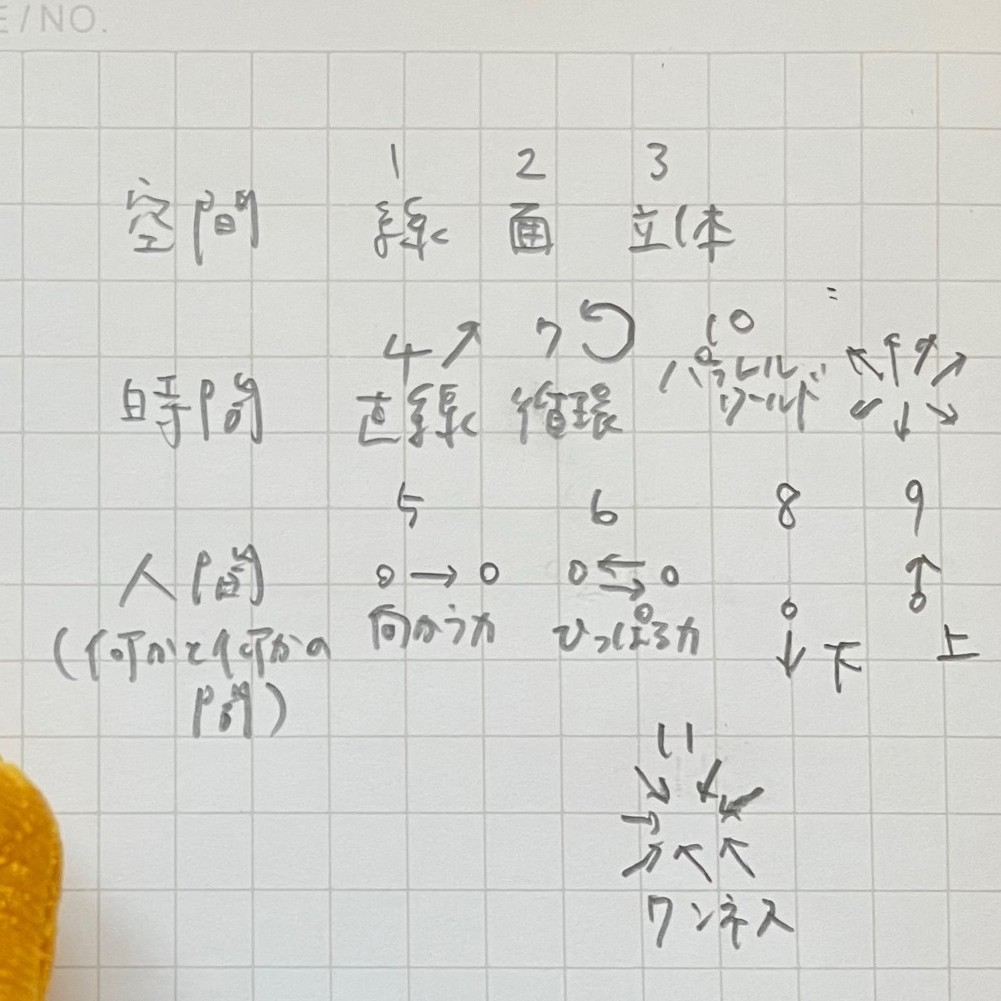 E/NO.
1 2 3
空間 線 面 立体
4 7 10
時間 直線 循環 パラレル
ワールド
5 6 8 9
人間
(何かと何かの
間)
向かう力 ひっぱる力 下 上
11
ワンネス